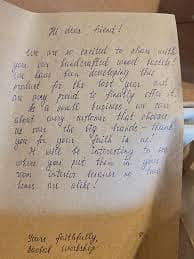 Hi dear friend!
We are so excited to share with
you our handcrafted wood
We have been developing this
product for the last year and
are very proud to finally offer it.
As a small business, we care
about every customer that chooses
us over the big brands - thank
you for your faith in us!
It will be interesting to see
where you put them in your
own interior because no two
homes are alike!
Yours faithfully,
workshop